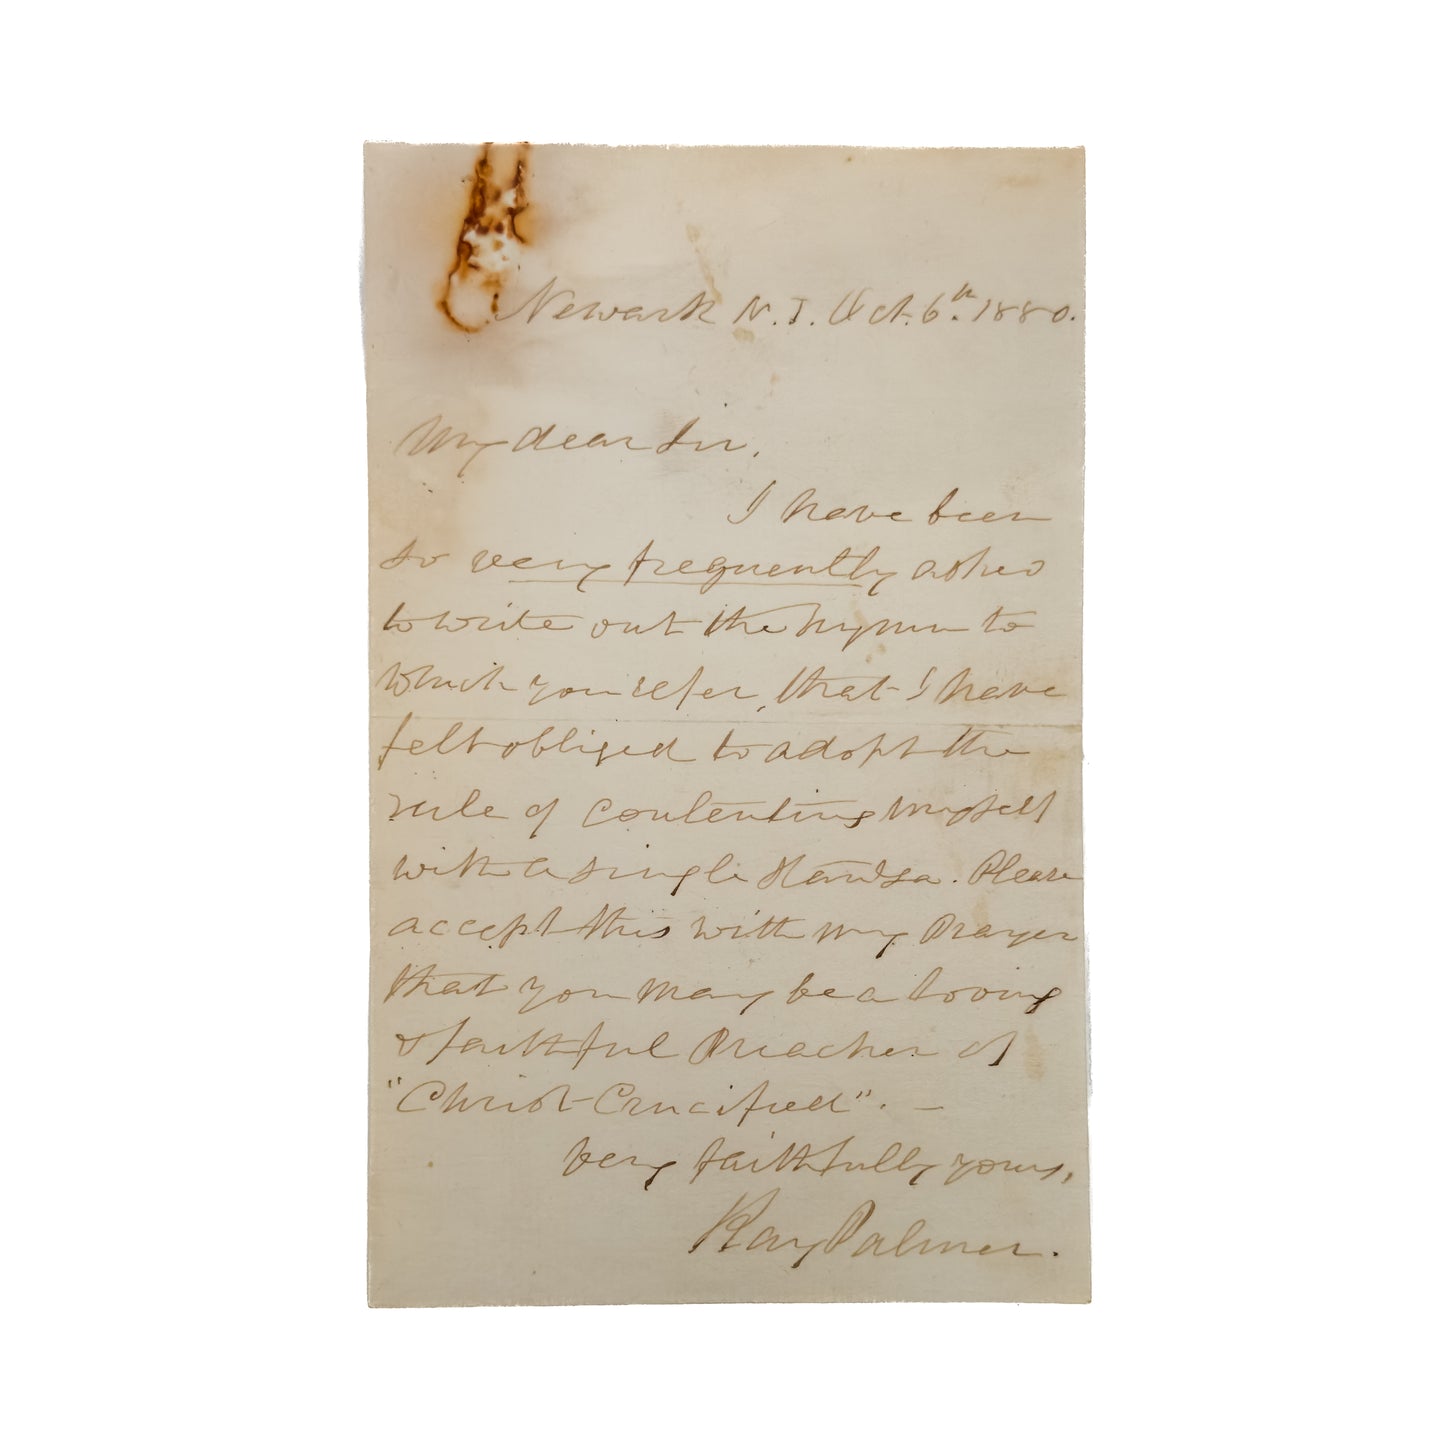 Newark N. J. Oct. 6th. 1880.
My dear Sir.
I have been
so very frequently asked
to write out the hymn to
which you refer, that I have
felt obliged to adopt the
rule of contenting myself
with a single stanza. Please
accept this with my Prayer
that you may be a loving
& faithful Preacher of
"Christ-Crucified". —
Very faithfully yours,
Ray Palmer.